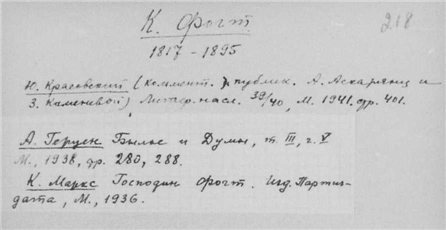 К. Фогт.
218
1817 - 1895
Ю. Красовский (коммент.), публик. А. Аскарянц и
З. Каменевой), Литер. насл. 39/40, М. 1941. стр. 401.
А. Герцен Былое и Думы, т. III, г. V
М., 1938, стр. 280, 288.
К. Маркс Господин Фогт. Изд. Партиз-
дата, М., 1936.